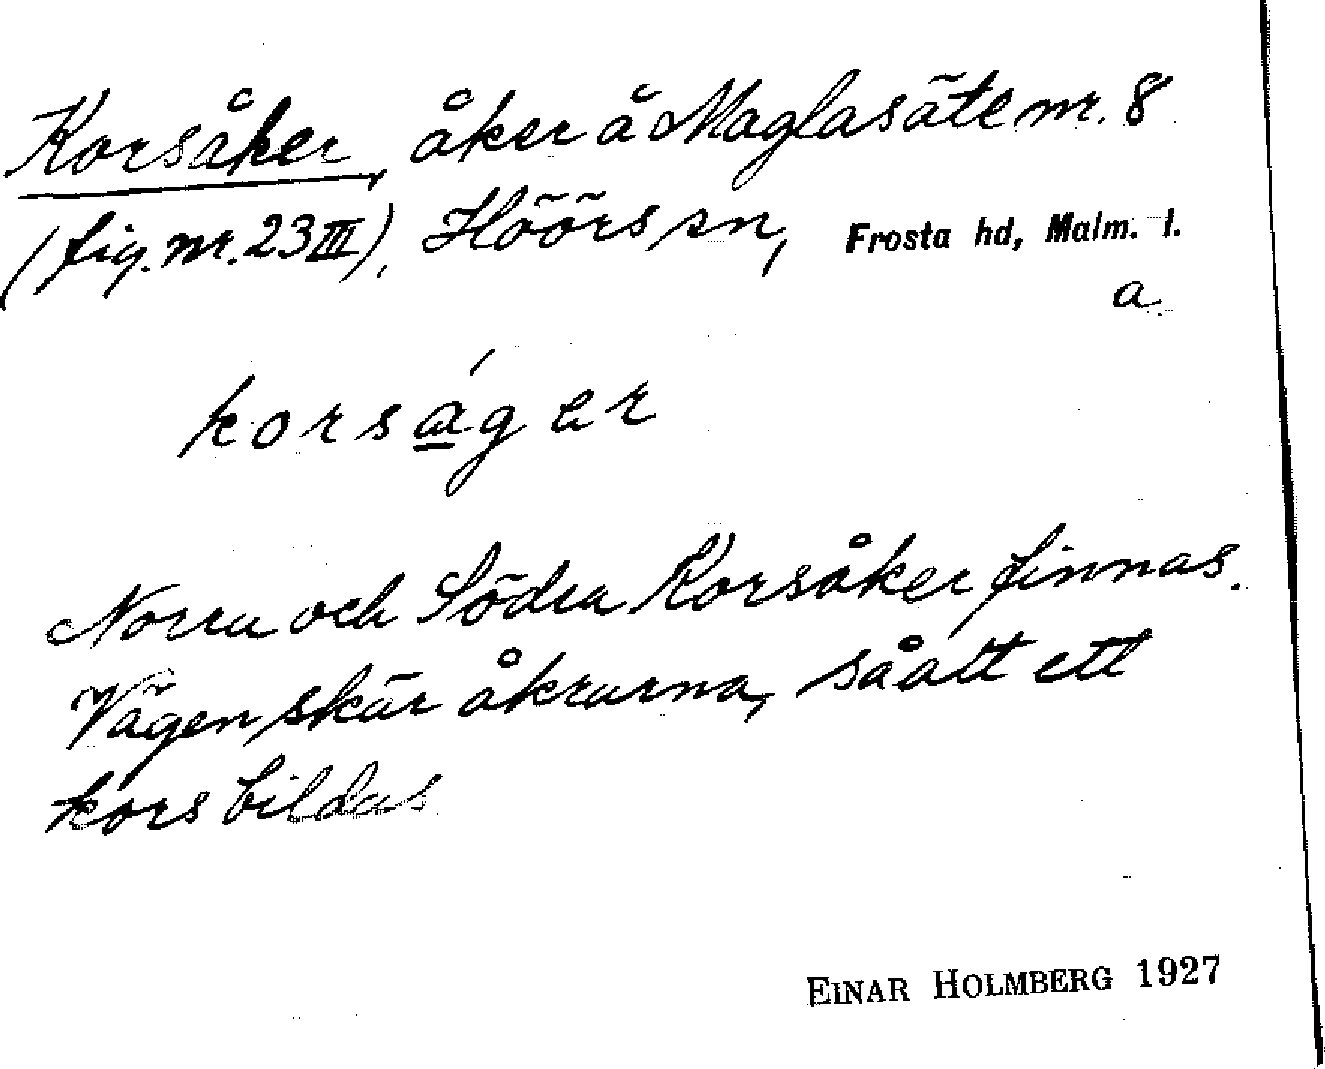 Korsåker, åker å Maglasäte nr. 8
(fig. nr. 23 III), Höörs sn, Frosta hd, Malm. l.
a.
korsǻ̲ger
Norra och Södra Korsåker finnas.
Vägen skär åkrarna, såatt ett
kors bildas
EINAR HOLMBERG 1927